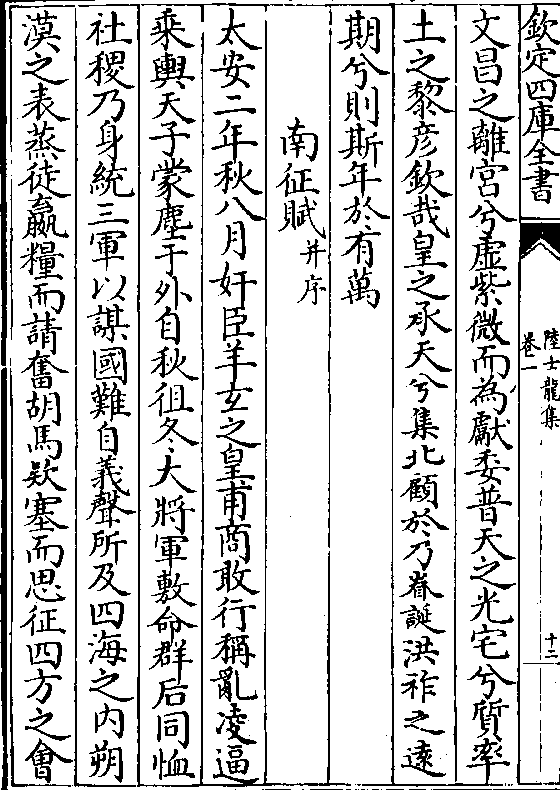 欽定四庫全書
陸士龍集
卷一
十二
文昌之離宮兮虛紫微而為獻委普天之光宅兮質率
土之黎彥欽哉皇之承天兮集北顧於乃眷誕洪祚之遠
期兮則斯年於有萬
南征賦并序
太安二年秋八月奸臣羊玄之皇甫商敢行稱亂凌逼
乘輿天子蒙塵于外自秋徂冬大將軍敷命群后同恤
社稷乃身統三軍以謀國難自義聲所及四海之內朔
漠之表蒸徒嬴糧而請奮胡馬欵塞而思征四方之會